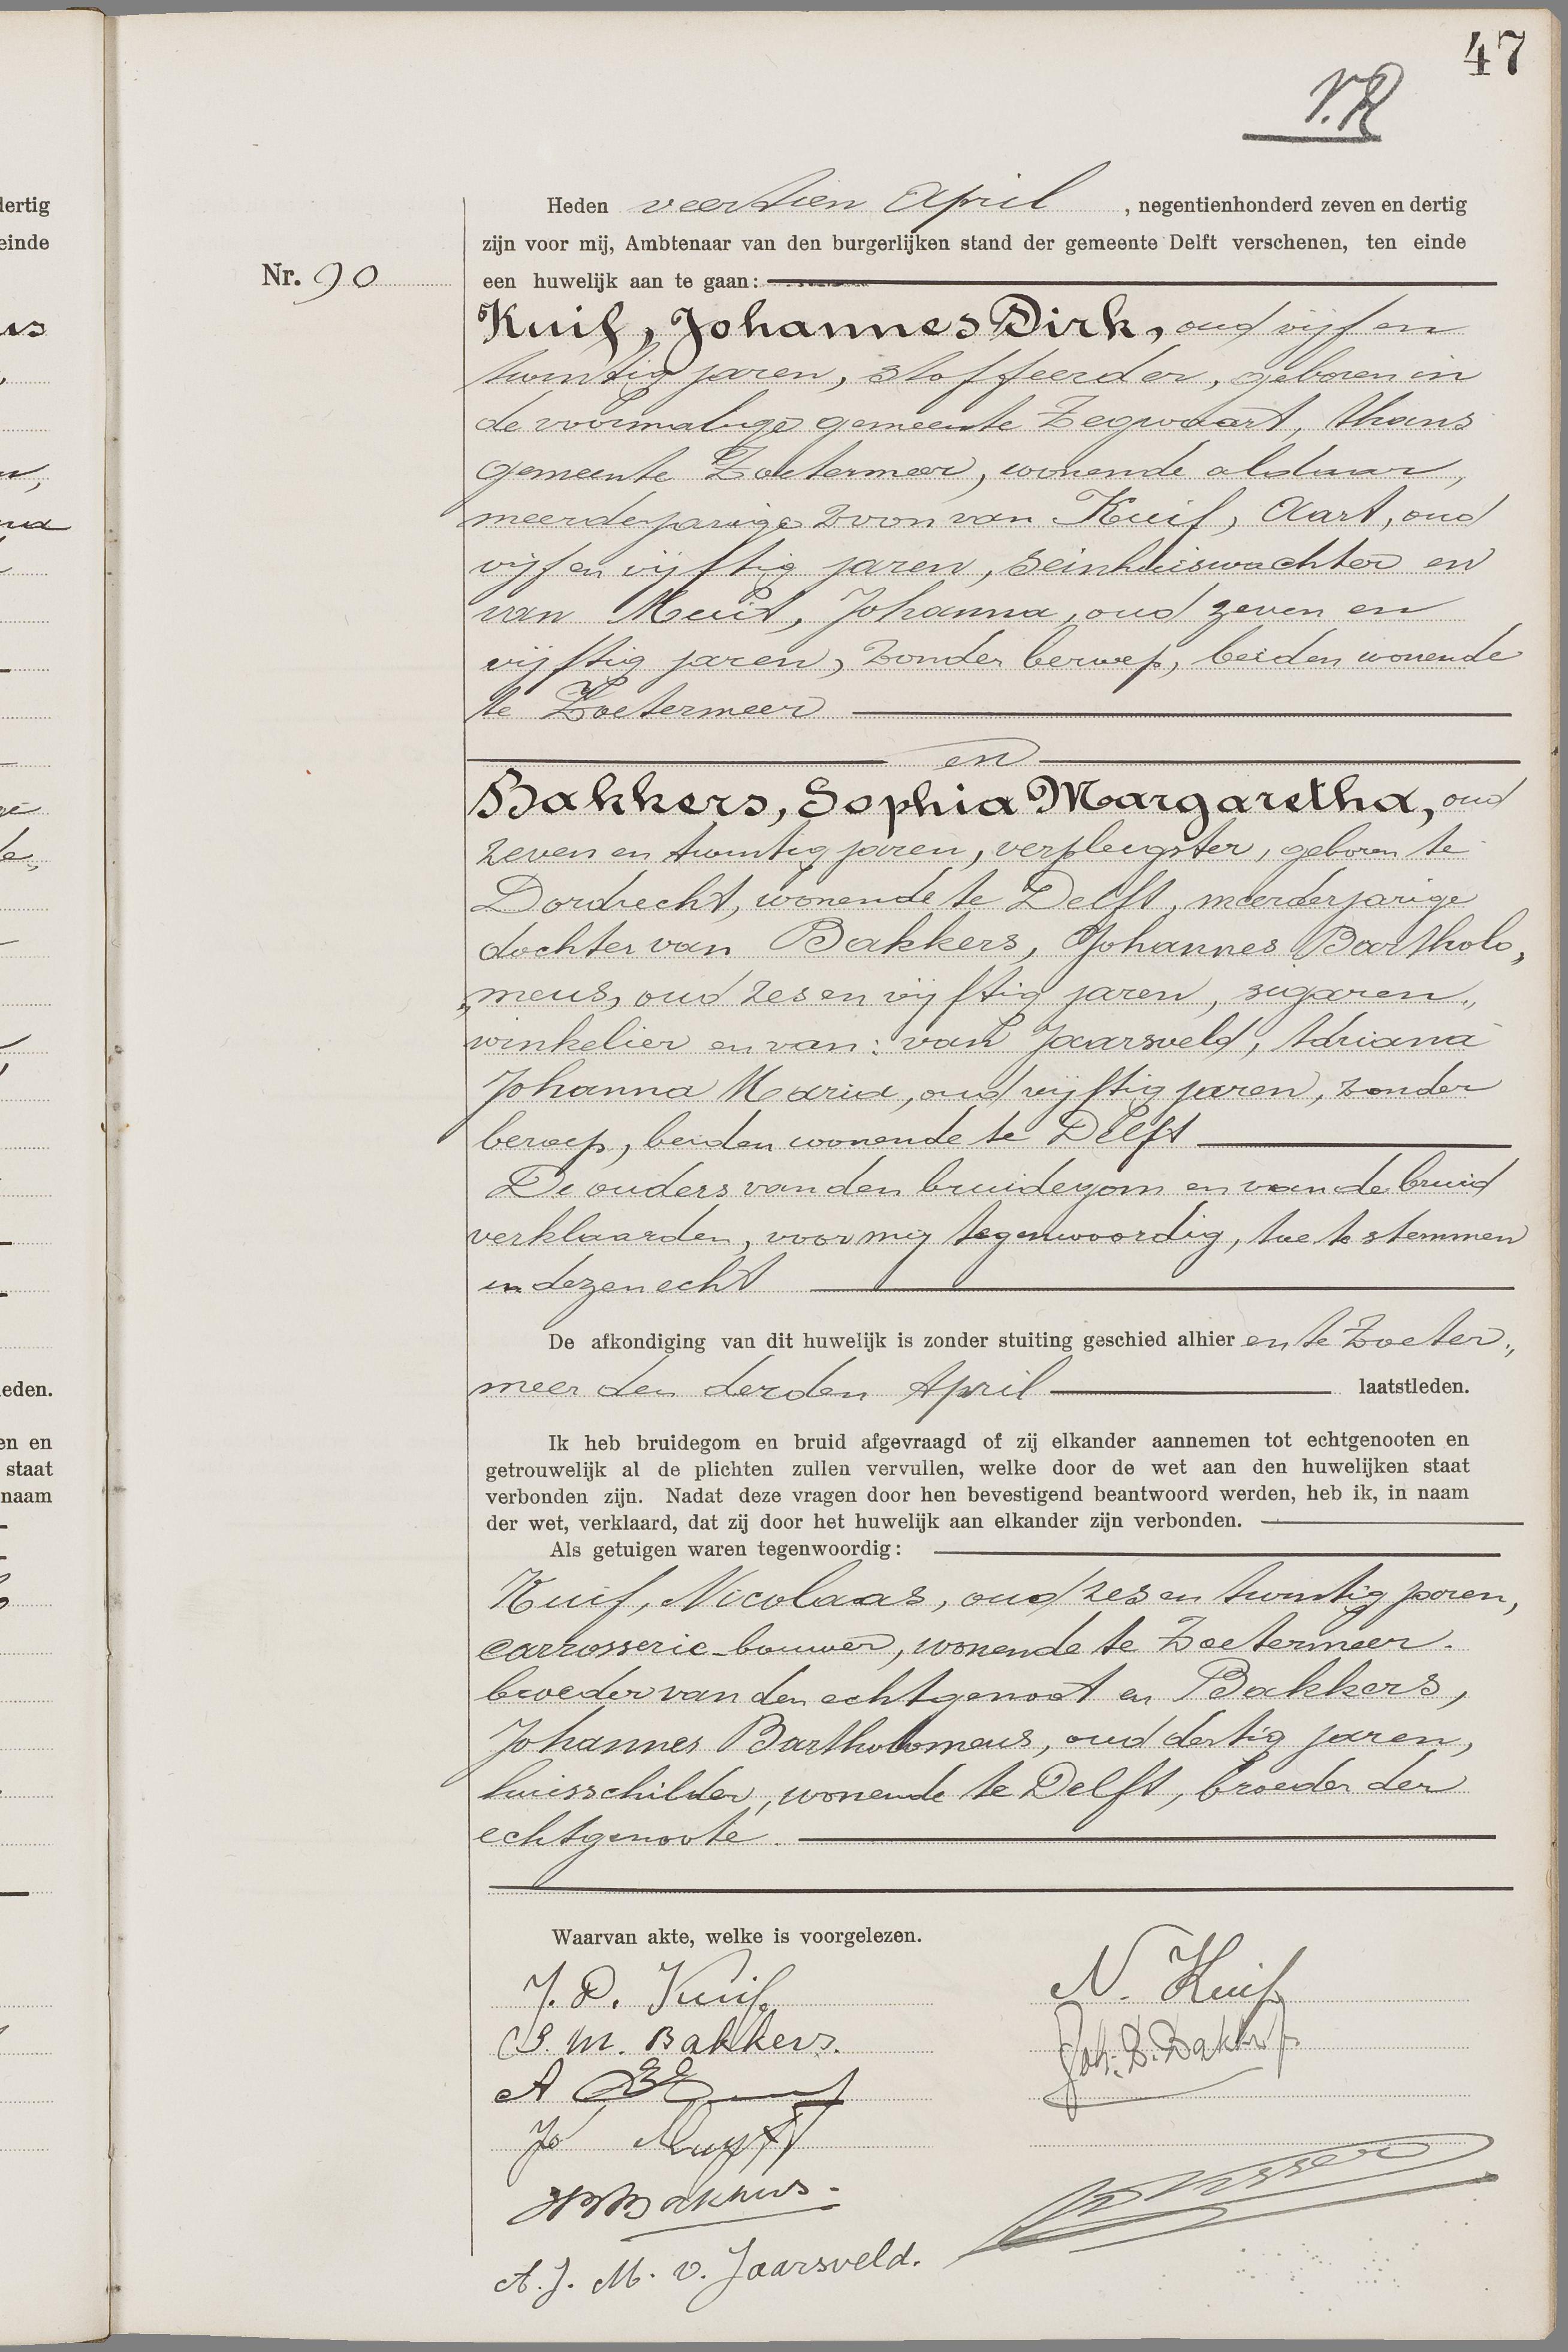 47
V.R
Heden veertien April , negentienhonderd zeven en dertig
zijn voor mij, Ambtenaar van den burgerlijken stand der gemeente Delft verschenen, ten einde
Nr. 90
een huwelijk aan te gaan:
Kuif, Johannes Dirk, oud vijf en
twintig jaren, stoffeerder, geboren in
de voormalige gemeente Zegwaart, thans
gemeente Zoetermeer, wonende aldaar,
meerderjarige zoon van Kuif, Aart, oud
vijf en vijftig jaren, seinhuiswachter en
van Muit, Johanna, oud zeven en
vijftig jaren, zonder beroep, beiden wonende
te Zoetermeer
en
Bakkers, Sophia Margaretha, oud
zeven en twintig jaren, verpleegster, geboren te
Dordrecht, wonende te Delft, meerderjarige
dochter van Bakkers, Johannes Bartholo„
„meus, oud zes en vijftig jaren, sigaren„
winkelier en van: van Jaarsveld, Adriana
Johanna Maria, oud vijftig jaren, zonder
beroep, beiden wonende te Delft
De ouders van den bruidegom en van de bruid
verklaarden, voor mij tegenwoordig, toe te stemmen
in dezen echt
De afkondiging van dit huwelijk is zonder stuiting geschied alhier en te Zoeter„
meer den derden April laatstleden.
Ik heb bruidegom en bruid afgevraagd of zij elkander aannemen tot echtgenooten en
getrouwelijk al de plichten zullen vervullen, welke door de wet aan den huwelijken staat
verbonden zijn. Nadat deze vragen door hen bevestigend beantwoord werden, heb ik, in naam
der wet, verklaard, dat zij door het huwelijk aan elkander zijn verbonden.
Als getuigen waren tegenwoordig:
Kuif, Nicolaas, oud zes en twintig jaren,
carrosserie-bouwer, wonende te Zoetermeer.
broeder van den echtgenoot en Bakkers,
Johannes Bartholomeus, oud dertig jaren,
huisschilder, wonende te Delft, broeder der
echtgenoote.
Waarvan akte, welke is voorgelezen.
J. D. Kuif.
N. Kuif
S. M. Bakkers.
Joh. B. Bakkers Jr.
A
Jo
Bakkers.
Visser
A. J. M. v. Jaarsveld.